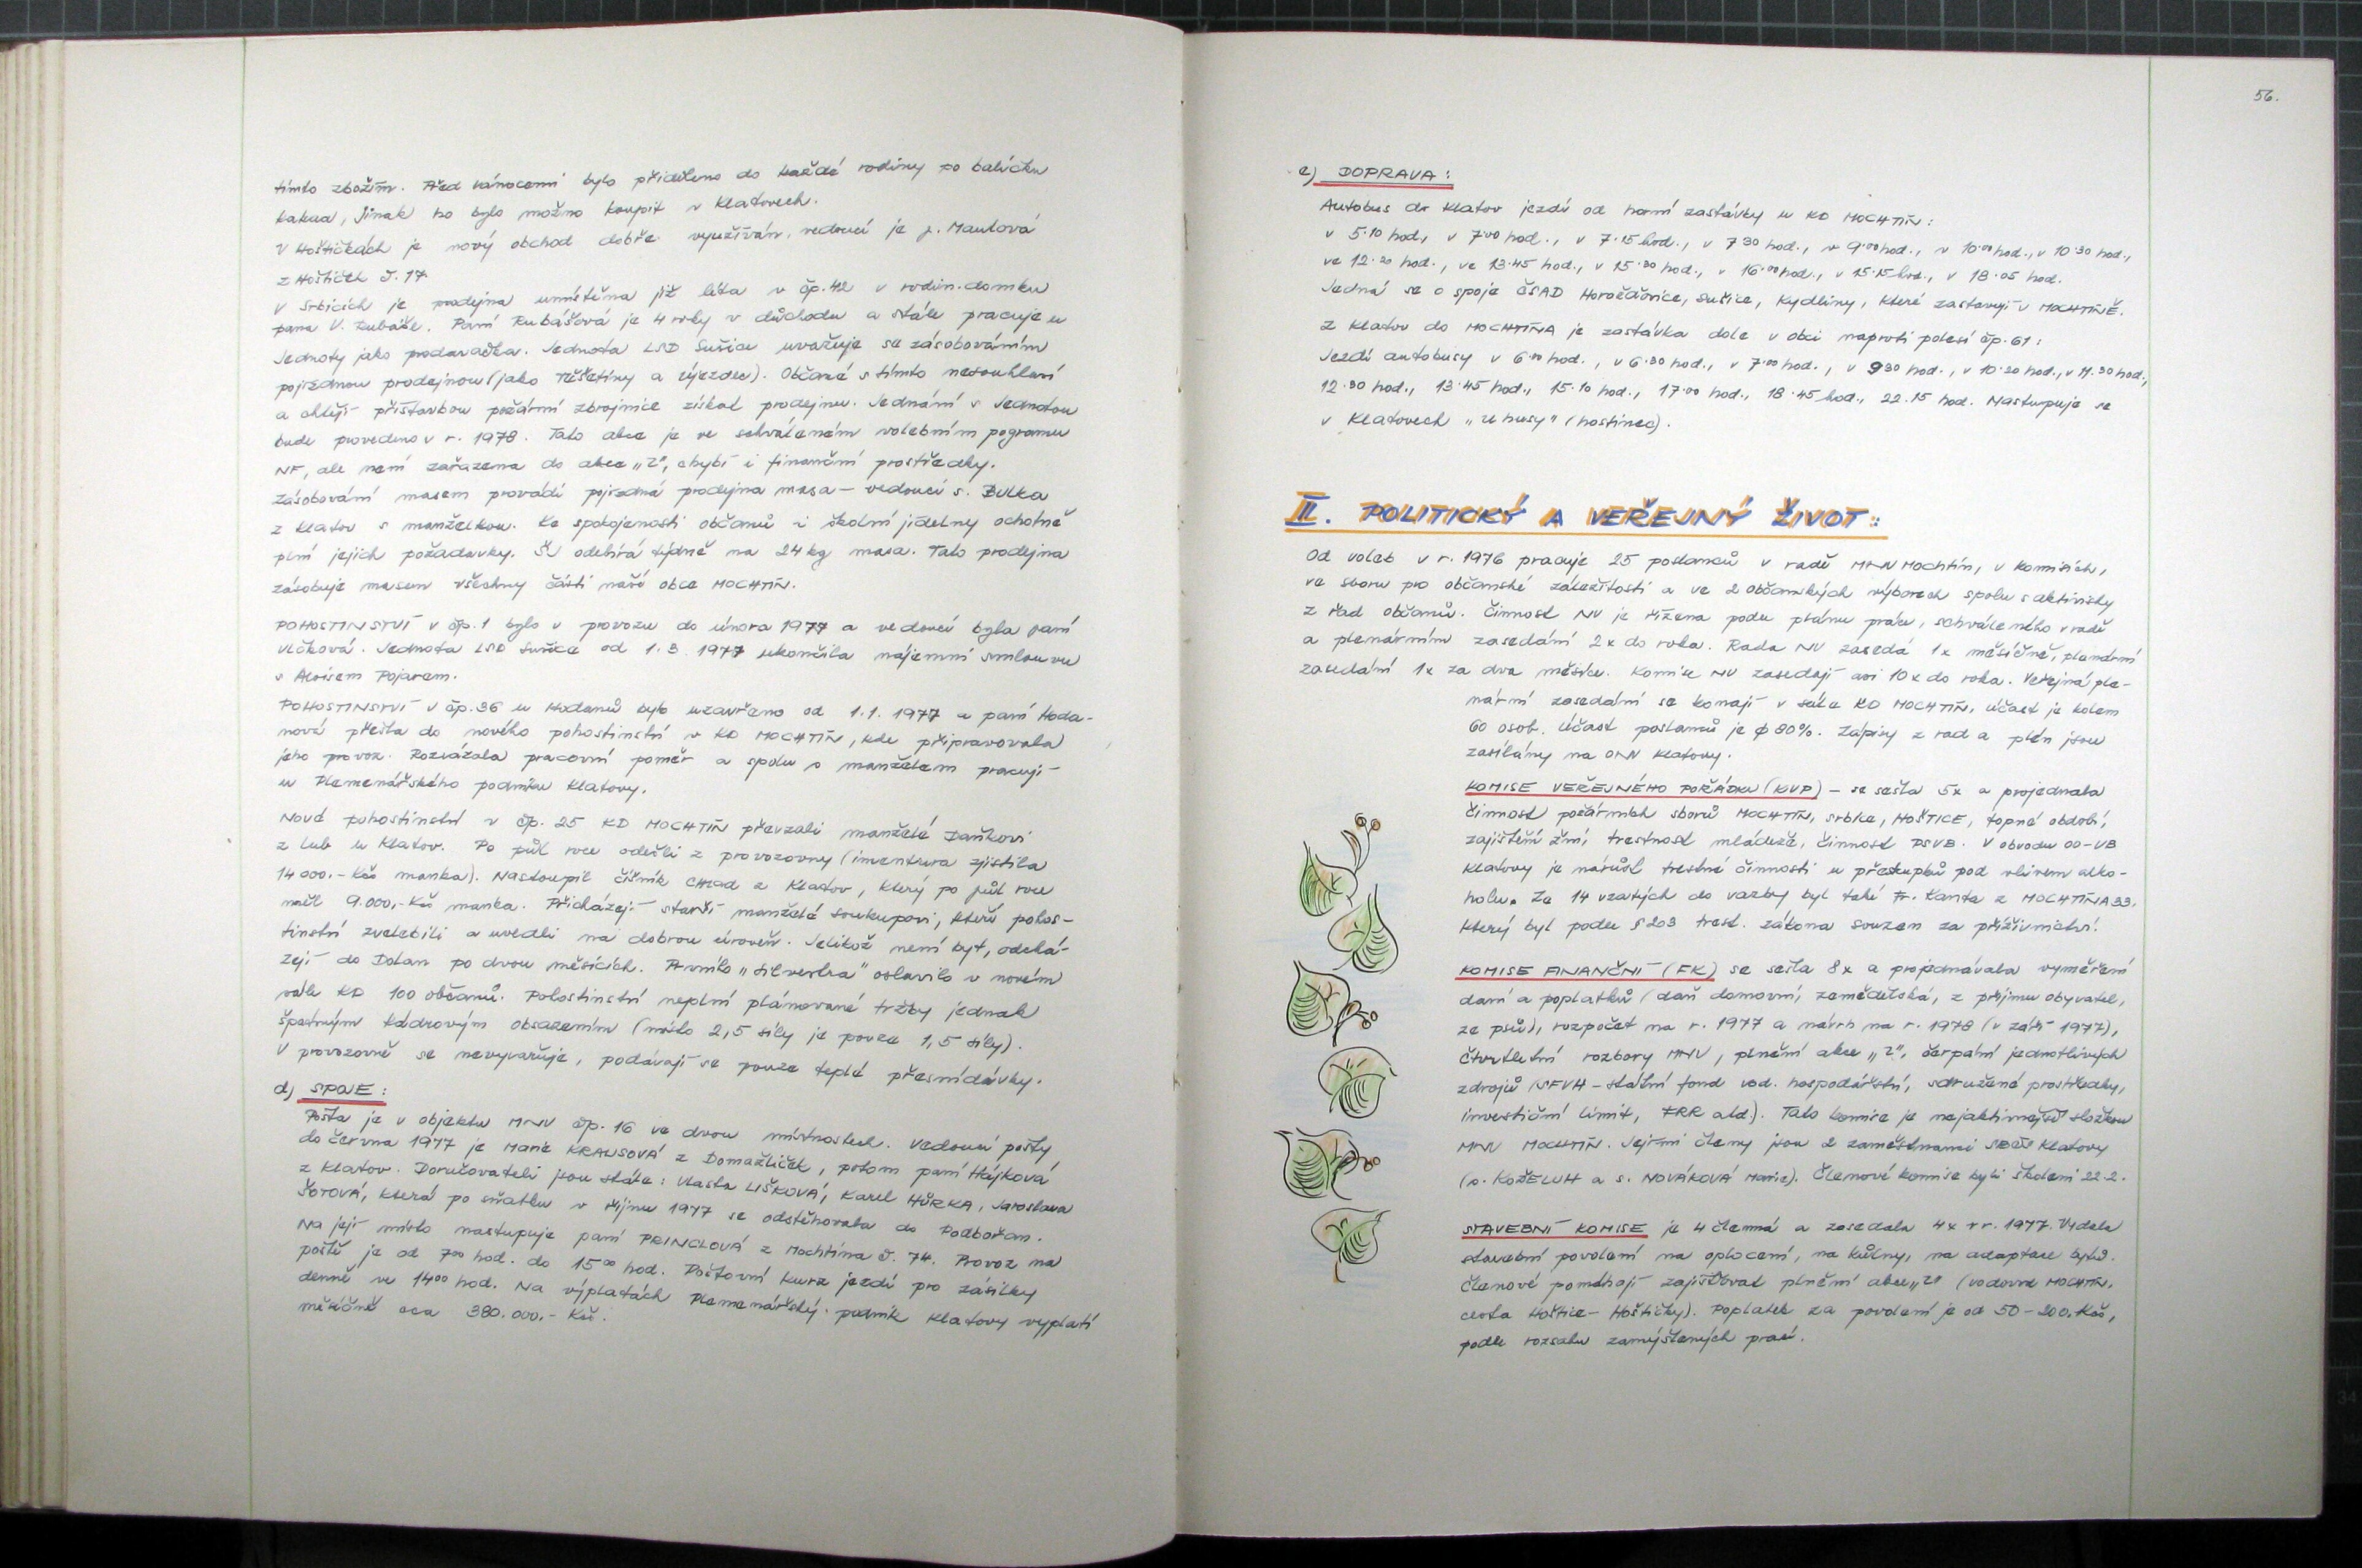 tímto zbožím. Před vánocemi bylo přiděleno do každé rodiny po balíčku
kakaa, jinak ho bylo možno koupit v Klatovech.
V Hoštičkách je nový obchod dobře využíván, vedoucí je p. Mautová
z Hoštiček č. 17.
V Srbicích je prodejna umístěna již léta v čp. 42 v rodin. domku
pana V. Rubáše. Paní Rubášová je 4 roky v důchodu a stále pracuje u
Jednoty jako prodavačka. Jednota LSD Sušice uvažuje se zásobováním
pojízdnou prodejnou (jako Těšetiny a Újezdec). Občané s tímto nesouhlasí
a chtějí přístavbou požární zbrojnice získat prodejnu. Jednání s Jednotou
bude provedeno v r. 1978. Tato akce je ve schváleném volebním pogramu
NF, ale není zařazena do akce „Z", chybí i finanční prostředky.
Zásobování masem provádí pojízdná prodejna masa - vedoucí s. Bulka
z Klatov s manželkou. Ke spokojenosti občanů i školní jídelny ochotně
plní jejich požadavky. ŠJ odebírá týdně na 24 kg masa. Tato prodejna
zásobuje masem všechny části naší obce MOCHTÍN.
POHOSTINSTVÍ v čp. 1 bylo v provozu do února 1977 a vedoucí byla paní
Vlčková. Jednota LSD Sušice od 1.3. 1977 ukončila nájemní smlouvu
s Aloisem Pojarem.
POHOSTINSTVÍ v čp. 36 u Hodanů bylo uzavřeno od 1.1. 1977 a paní Hoda-
nová přešla do nového pohostinství v KD MOCHTÍN, kde připravovala
jeho provoz. Rozvázala pracovní poměr a spolu s manželem pracují
u Plemenářského podniku Klatovy.
Nové pohostinství v čp. 25 KD MOCHTÍN převzali manželé Daňkovi
z Lub u Klatov. Po půl roce odešli z provozovny (inventura zjistila
14 000.- Kčs manka). Nastoupil číšník CHLAD z Klatov, který po půl roce
měl 9.000,- Kčs manka. Přicházejí starší manželé Soukupovi, kteří pohos-
tinství zvelebili a uvedli na dobrou úroveň. Jelikož není byt, odchá-
zejí do Dolan po dvou měsících. Prvního „Silvestra" oslavilo v novém
sále KD 100 občanů. Pohostinství neplní plánované tržby jednak
špatným kádrovým obsazením (místo 2,5 síly je pouze 1,5 síly).
V provozovně se nevyvařuje, podávají se pouze teplé přesnídávky.
d) SPOJE:
Pošta je v objektu MNV čp. 16 ve dvou místnostech. Vedoucí pošty
do června 1977 je Marie KRAUSOVÁ z Domažliček, potom paní Hájková
z Klatov. Doručovateli jsou stále: Vlasta LIŠKOVÁ, Karel HŮRKA, Jaroslava
ŠOTOVÁ, která po sňatku v říjnu 1977 se odstěhovala do Podbořan.
Na její místo nastupuje paní PRINCLOVÁ z Mochtína č. 74. Provoz na
poště je od 7⁰⁰ hod. do 15⁰⁰ hod. Poštovní kurz jezdí pro zásilky
denně ve 14⁰⁰ hod. Na výplatách Plemenářský podnik Klatovy vyplatí
měsíčně cca 380.000.- Kčs.
56.
e) DOPRAVA:
Autobus do Klatov jezdí od horní zastávky u KD MOCHTÍN:
v 5.10 hod., v 7.00 hod., v 7.15 hod., v 7 30 hod., v 9.00 hod., v 10.00 hod., v 10.30 hod.,
ve 12.20 hod., ve 13.45 hod., v 15.30 hod., v 16.00 hod., v 15.15 hod., v 18.05 hod.
Jedná se o spoje ČSAD Horažďovice, Sušice, Kydliny, které zastavují v MOCHTÍNĚ.
Z Klatov do MOCHTÍNA je zastávka dole v obci naproti polesí čp. 61:
Jezdí autobusy v 6.10 hod., v 6.30 hod., v 7.00 hod., v 9 30 hod., v 10.20 hod., v 11.30 hod.,
12.30 hod., 13.45 hod., 15.10 hod., 17.00 hod., 18.45 hod., 22.15 hod. Nastupuje se
v Klatovech „U husy" (hostinec).
II. POLITICKÝ A VEŘEJNÝ ŽIVOT:
Od voleb v r. 1976 pracuje 25 poslanců v radě MNV Mochtín, v komisích,
ve sboru pro občanské záležitosti a ve 2 občanských výborech spolu s aktivisty
z řad občanů. Činnost NV je řízena podle plánu práce, schváleného v radě
a plenárním zasedání 2x do roka. Rada NV zasedá 1x měsíčně, plenární
zasedání 1x za dva měsíce. Komise NV zasedají asi 10x do roka. Veřejná ple-
nární zasedání se konají v sále KD MOCHTÍN, účast je kolem
60 osob. Účast poslanců je ø 80%. Zápisy z rad a plén jsou
zasílány na ONV Klatovy.
KOMISE VEŘEJNÉHO POŘÁDKU (KVP) - se sešla 5x a projednala
činnost požárních sborů MOCHTÍN, Srbice, HOŠTICE, topné období,
zajištění žní, trestnost mládeže, činnost PSVB. V obvodu OO-VB
Klatovy je nárůst trestné činnosti u přestupků pod vlivem alko-
holu. Ze 14 vzatých do vazby byl také Fr. Kanta z MOCHTÍNA 33,
který byl podle § 203 trest. zákona souzen za příživnictví.
KOMISE FINANČNÍ (FK) se sešla 8x a projednávala vyměření
daní a poplatků (daň domovní, zemědělská, z příjmu obyvatel,
ze psů), rozpočet na r. 1977 a návrh na r. 1978 (v září 1977),
čtvrtletní rozbory MNV, plnění akce „Z", čerpání jednotlivých
zdrojů (SFVH - státní fond vod. hospodářství, sdružené prostředky,
investiční limit, FRR atd.). Tato komise je nejaktivnější složkou
MNV MOCHTÍN. Jejími členy jsou 2 zaměstnanci SBČS Klatovy
(s. KOŽELUH a s. NOVÁKOVÁ Marie). Členové komise byli školeni 22.2.
STAVEBNÍ KOMISE je 4 členná a zasedala 4x v r. 1977. Vydala
stavební povolení na oplocení, na kůlny, na adaptace bytů.
Členové pomáhají zajišťovat plnění akce „Z" (vodovod MOCHTÍN,
cesta Hoštice - Hoštičky). Poplatek za povolení je od 50 - 200.Kčs,
podle rozsahu zamýšlených prací.